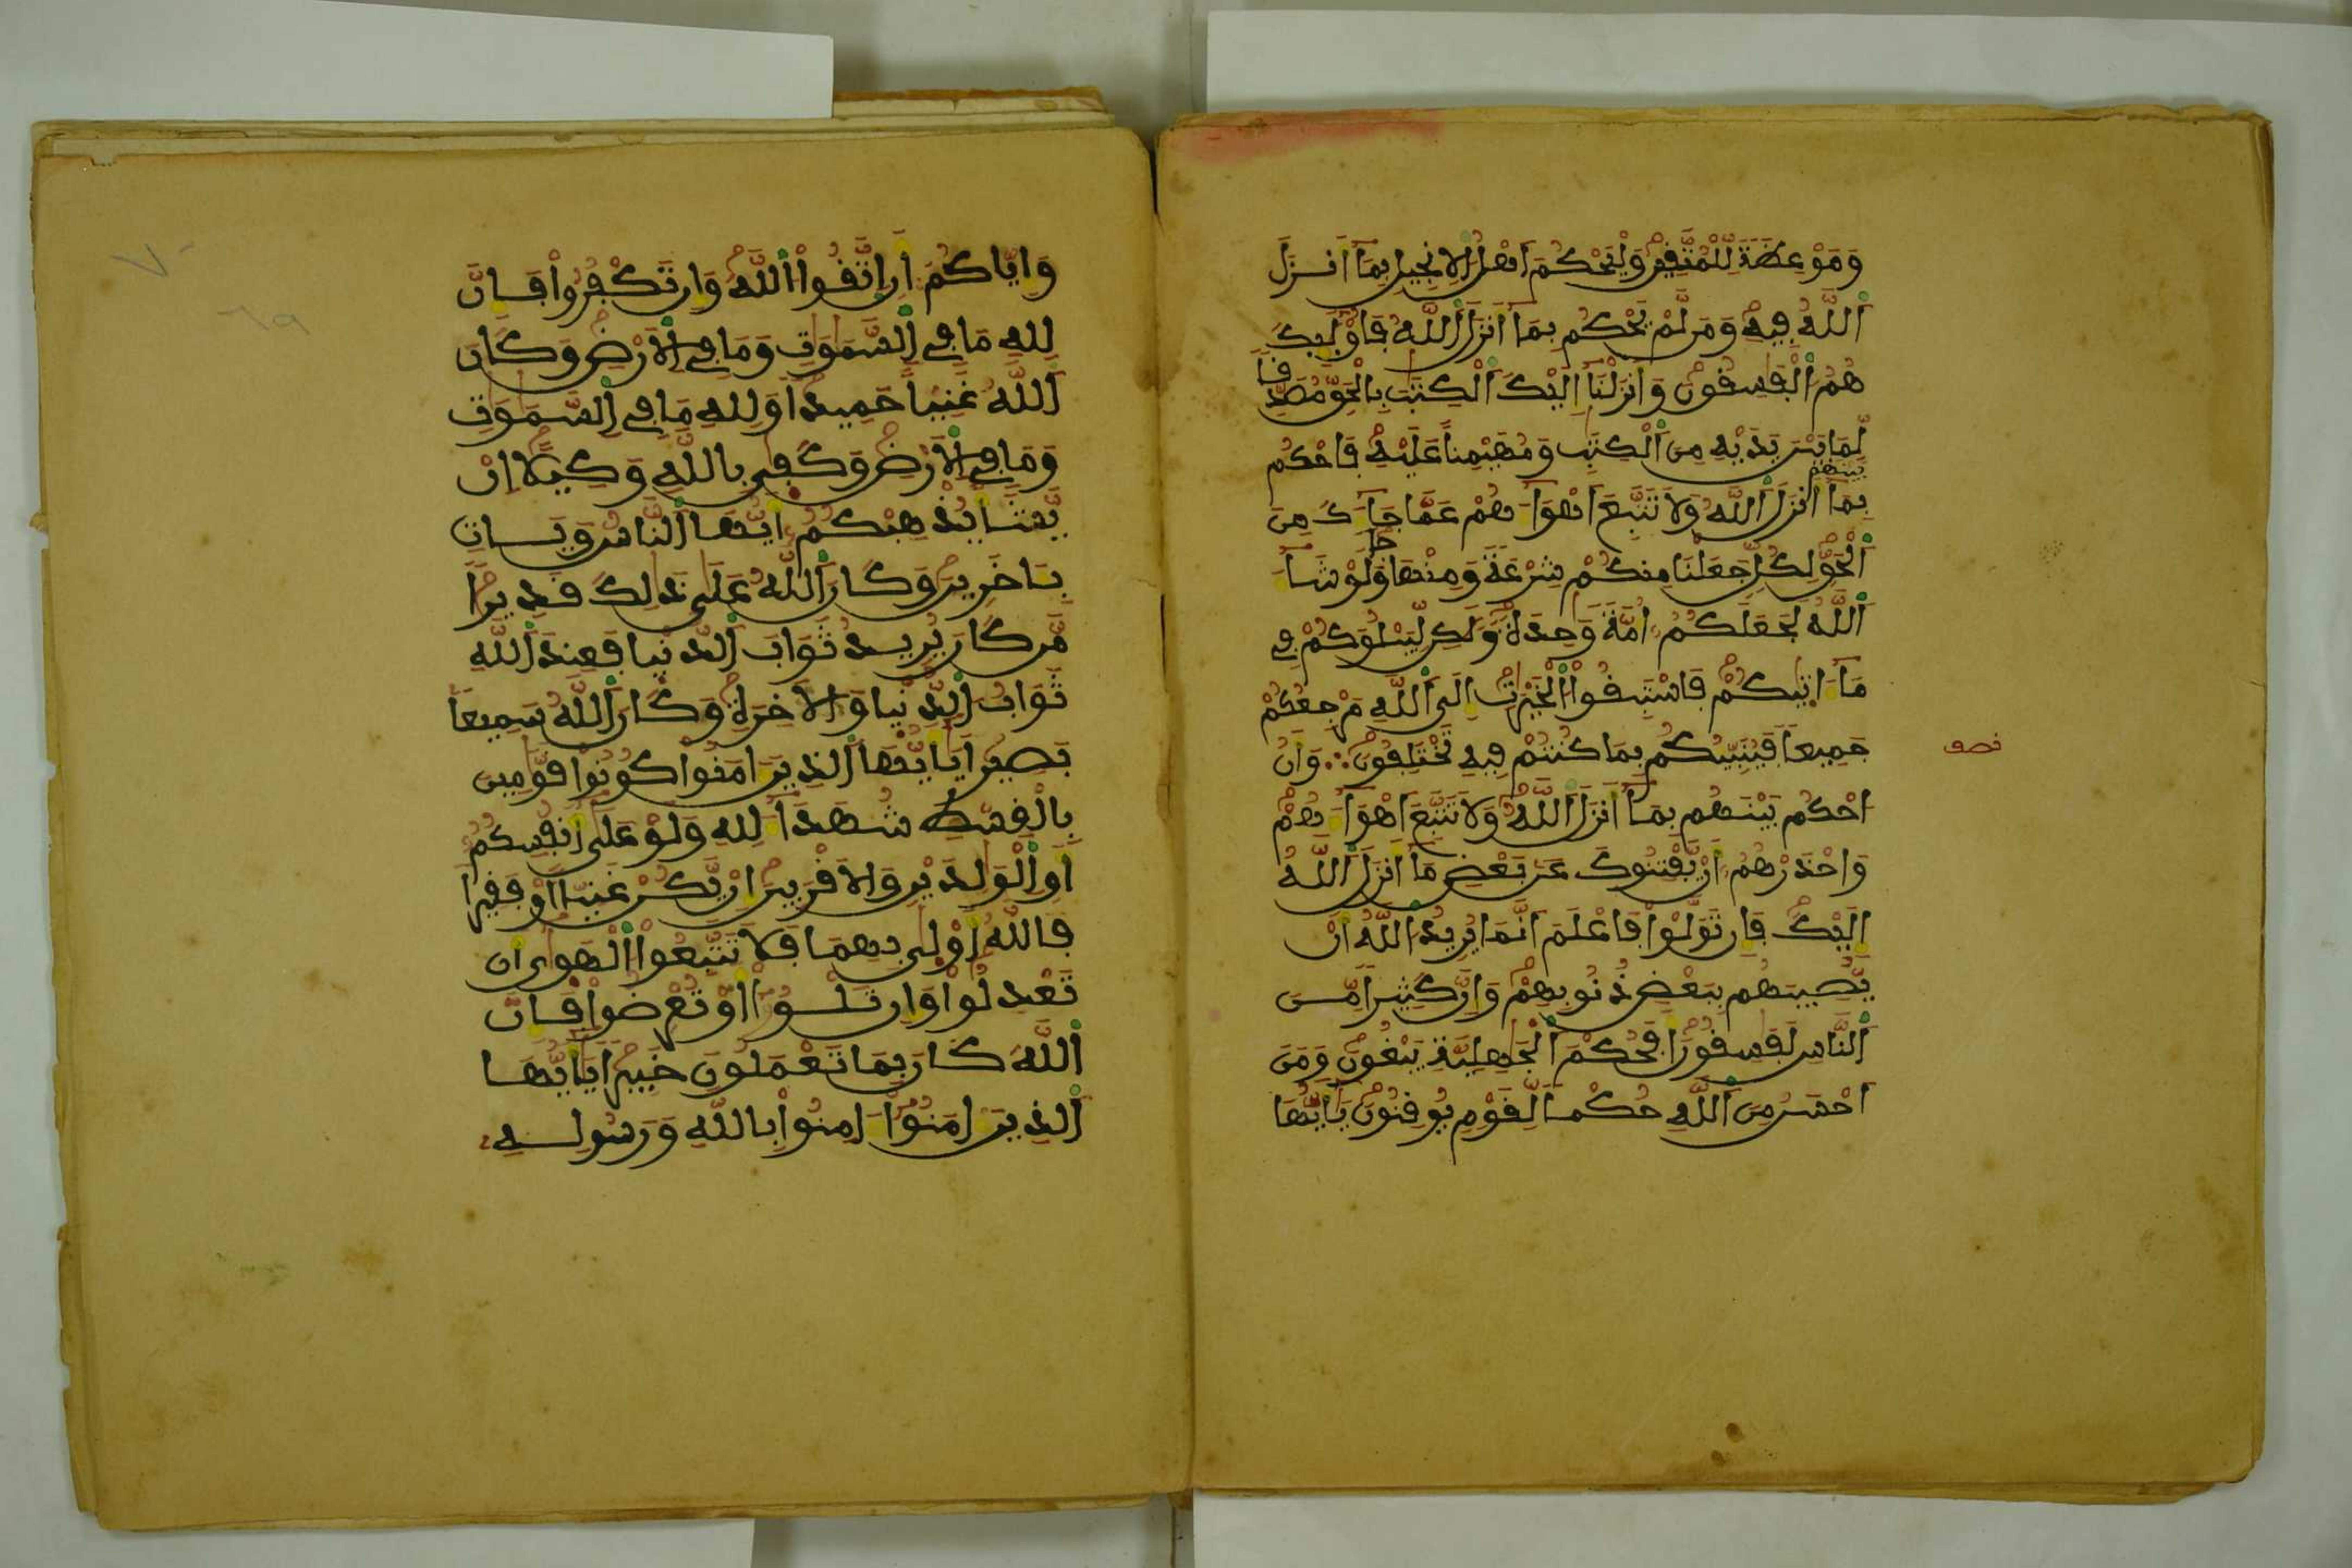 وَمَوْعِظَةً لِّلْمُتَّفِيںَ وَلْيَحْكُمَ اَهْلُ اُلاِنجِيلِ بِمَا أَنزَلَ
اَللَّهُ ڢِيهِ وَمَں لَّمْ يَحْكُم بِمَا أَنزَلَ اَللَّهُ ڢَأُوْلَٰٓئِكَ
هُمُ اُلْڢَٰسِفُونَ وَأَنزَلْنَا إِلَيْكَ اَلْكِتَٰبَ بِالْحَقِّ مُصَدِّ فاً
لِّمَا بَيْںَ يَدَيْهِ مِنَ اَلْكِتَٰبِ وَمُهَيْمِناً عَلَيْهِ ڢَاحْكُم
بينهم
بِمَا أَنزَلَ اَللَّهُ وَلاَ تَتَّبِعَ اَهْوَآءَهُمْ عَمَّا جَآءَكَ مِنَ
اَلْحَقِّ لِكُلٍّ جَعَلْنَا مِنكُمْ شِرْعَةً وَمِنْهَا جاً وَلَوْ شَآءَ
اَللَّهُ لَجَعَلَكُمُ أُمَّةً وَٰحِدَةً وَلَٰكِں لِّيَبْلُوَكُمْ ڢِے
مَآ ءَاتَيٰكُمْ ڢَاسْتَبِفُواْ اُلْخَيْرَٰتِ إِلَى اَللَّهِ مَرْجِعُكُمْ
جَمِيعاً ڢَيُنَبِّئُكُم بِمَا كُنتُمْ ڢِيهِ تَخْتَلِڢُونَ ؞ وَأَنُ
نصڢ
اُحْكُم بَيْنَهُم بِمَا أَنزَلَ اَللَّهُ وَلاَ تَتَّبِعَ اَهْوَآءَهُمْ
وَاحْذَرْهُمُ أَںْ يَّڢْتِنُوكَ عَںۢ بَعْضِ مَا أَنزَلَ اَللَّهُ
إِلَيْكَ ڢَإِں تَوَلَّوْاْ ڢَاعْلَمَ اَنَّمَا يُرِيدُ اُللَّهُ أَںْ
يُّصِيبَهُم بِبَعْضِ ذُنُوبِهِمْ وَإِنَّ كَثِيراً مِّںَ
اَلنَّاسِ لَڢَٰسِفُوںَ أَڢَحُكْمَ اَلْجَٰهِلِيَّةِ يَبْغُونَ وَمَنَ
اَحْسَںُ مِنَ اَللَّهِ حُكْماً لِّفَوْمٍ يُوفِنُونَ يَٰأَيُّهَا
وَإِيَّاكُمُ أَںِ اِتَّفُواْ اُللَّهَ وَإِں تَكْڢُرُواْ ڢَإِںَّ
لِلهِ مَا ڢِے اِلسَّمَٰوَٰتِ وَمَا ڢِے اِلاَرْضِ وَكَاںَ
اَللَّهُ غَنِيّاً حَمِيداً وَلِلهِ مَا ڢِے اِلسَّمَٰوَٰتِ
وَمَا ڢِے اِلاَرْضِ وَكَڢِىٰ بِاللَّهِ وَكِيلاً إِںْ
يَّشَأْ يُذْهِبْكُمُ أَيُّهَا اَلنَّاسُ وَيَاتِ
بِـَٔاخَرِيںَ وَكَاںَ اَللَّهُ عَلَىٰ ذَٰلِكَ فَدِيراً
مَّں كَاںَ يُرِيدُ ثَوَابَ اَلدُّنْيا ڢَعِندَ اَللَّهِ
ثَوَابُ اُلدُّنْيا وَالاَخِرَةِ وَكَاںَ اَللَّهُ سَمِيعاً
بَصِيراً يَٰأَيُّهَا اَلذِيںَ ءَامَنُواْ كُونُواْ فَوَّٰمِيںَ
بِالْفِسْطِ شُهَدَآءَ لِلهِ وَلَوْ عَلَىٰ أَنڢُسِكُمُ
أَوِ اِلْوَٰلِدَيْںِ وَالاَفْرَبِيںَ إِںْ يَّكُںْ غَنِيّاً أَوْ ڢَفِيراً
ڢَاللَّهُ أَوْلَىٰ بِهِمَا ڢَلاَ تَتَّبِعُواْ اُلْهَوَىٰ أَن
تَعْدِلُواْ وَإِں تَلْوُۥٓاْ أَوْ تُعْرِضُواْ ڢَإِںَّ
اَللَّهَ كَاںَ بِمَا تَعْمَلُونَ خَبِيراً يَٰأَيُّهَا
اَلذِيںَ ءَامَنُوٓاْ ءَامِنُواْ بِاللَّهِ وَرَسُولِهِۦ
٧٠
٦٩